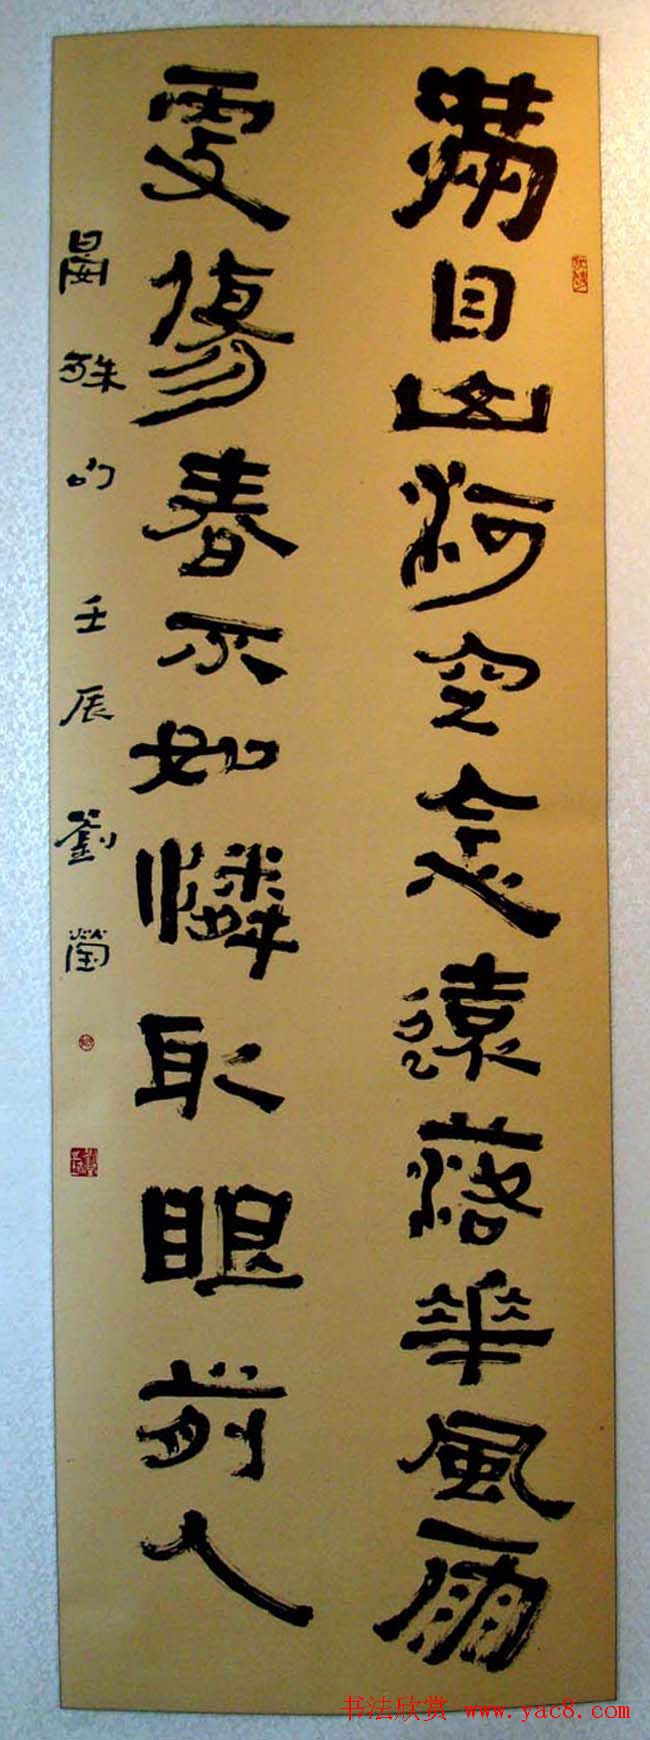 滿目山河空念遠落華風雨
更傷春不如憐取眼前人
晏殊句 壬辰 劉瑩
书法欣赏 www.yac8.com